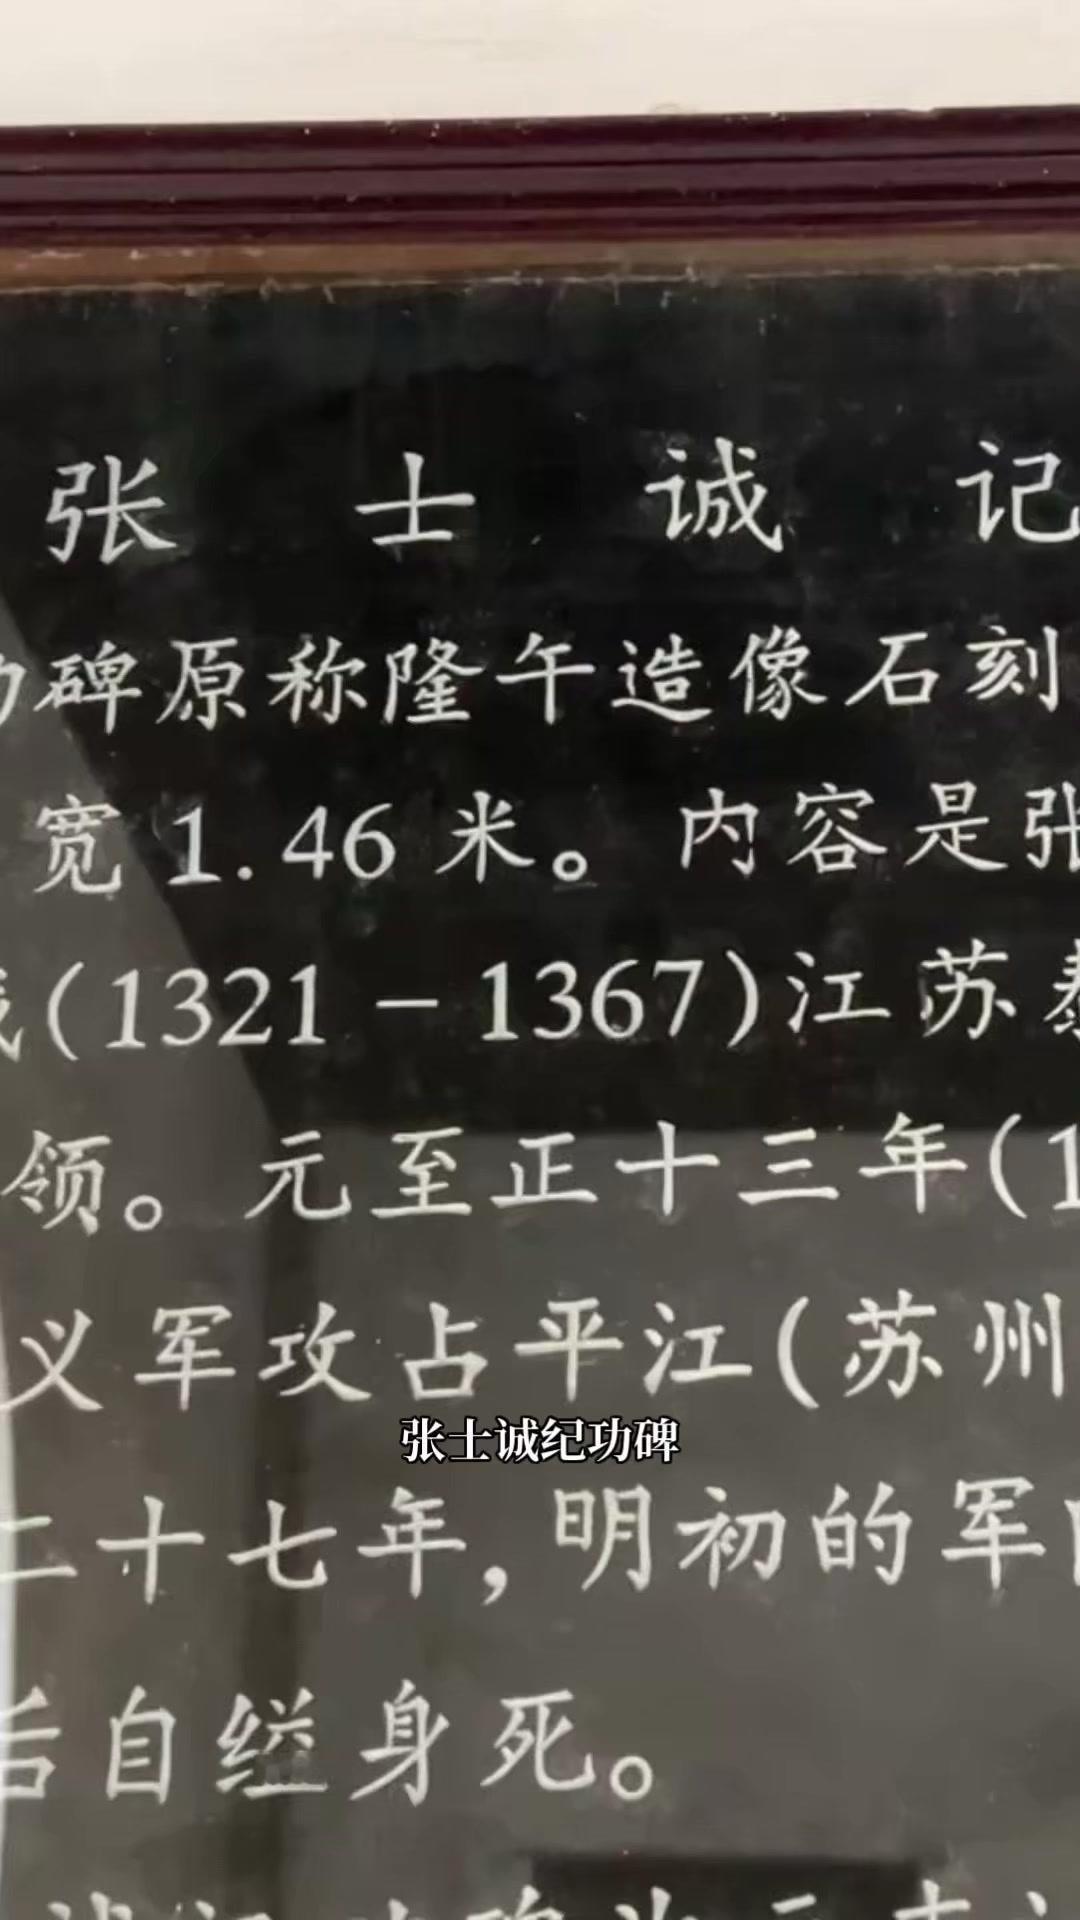 张士诚记
碑原称隆午造像石刻
宽1.46米。内容是张
(1321-1367)江苏泰
领。元至正十三年(1
义军攻占平江(苏州
张士诚纪功碑
二十七年,明初的军
后自缢身死。